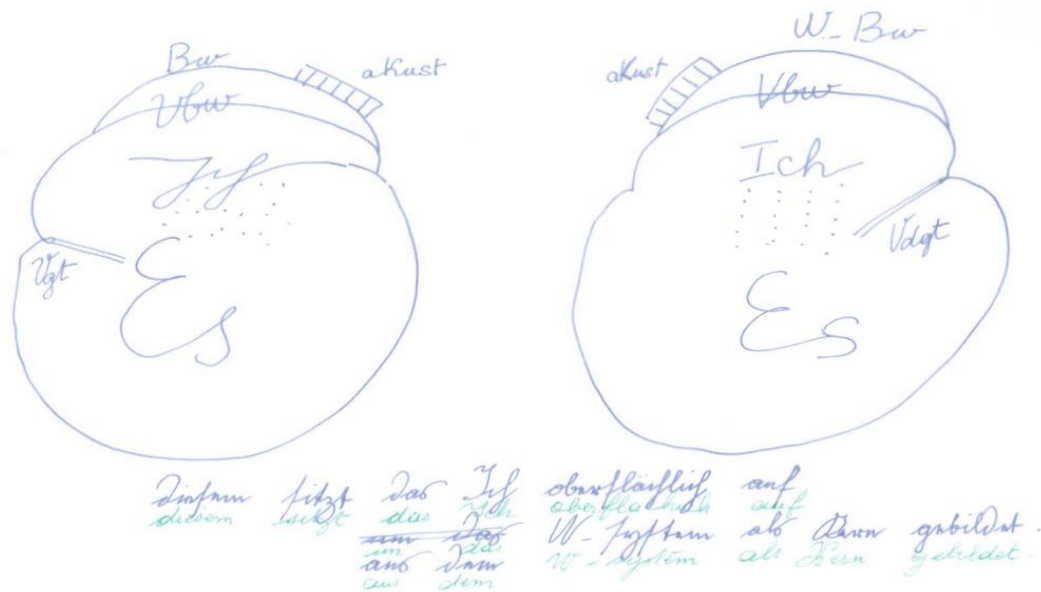 W-Bw
Bw akust akust
Vbw Vbw
Ich Ich
Vgt Vdgt
Es Es
diesem sitzt das Ich oberflächlich auf
diesem sitzt das Ich oberflächlich auf
um das W-System als Kern gebildet.
um das W-System als Kern gebildet.
aus dem
aus dem